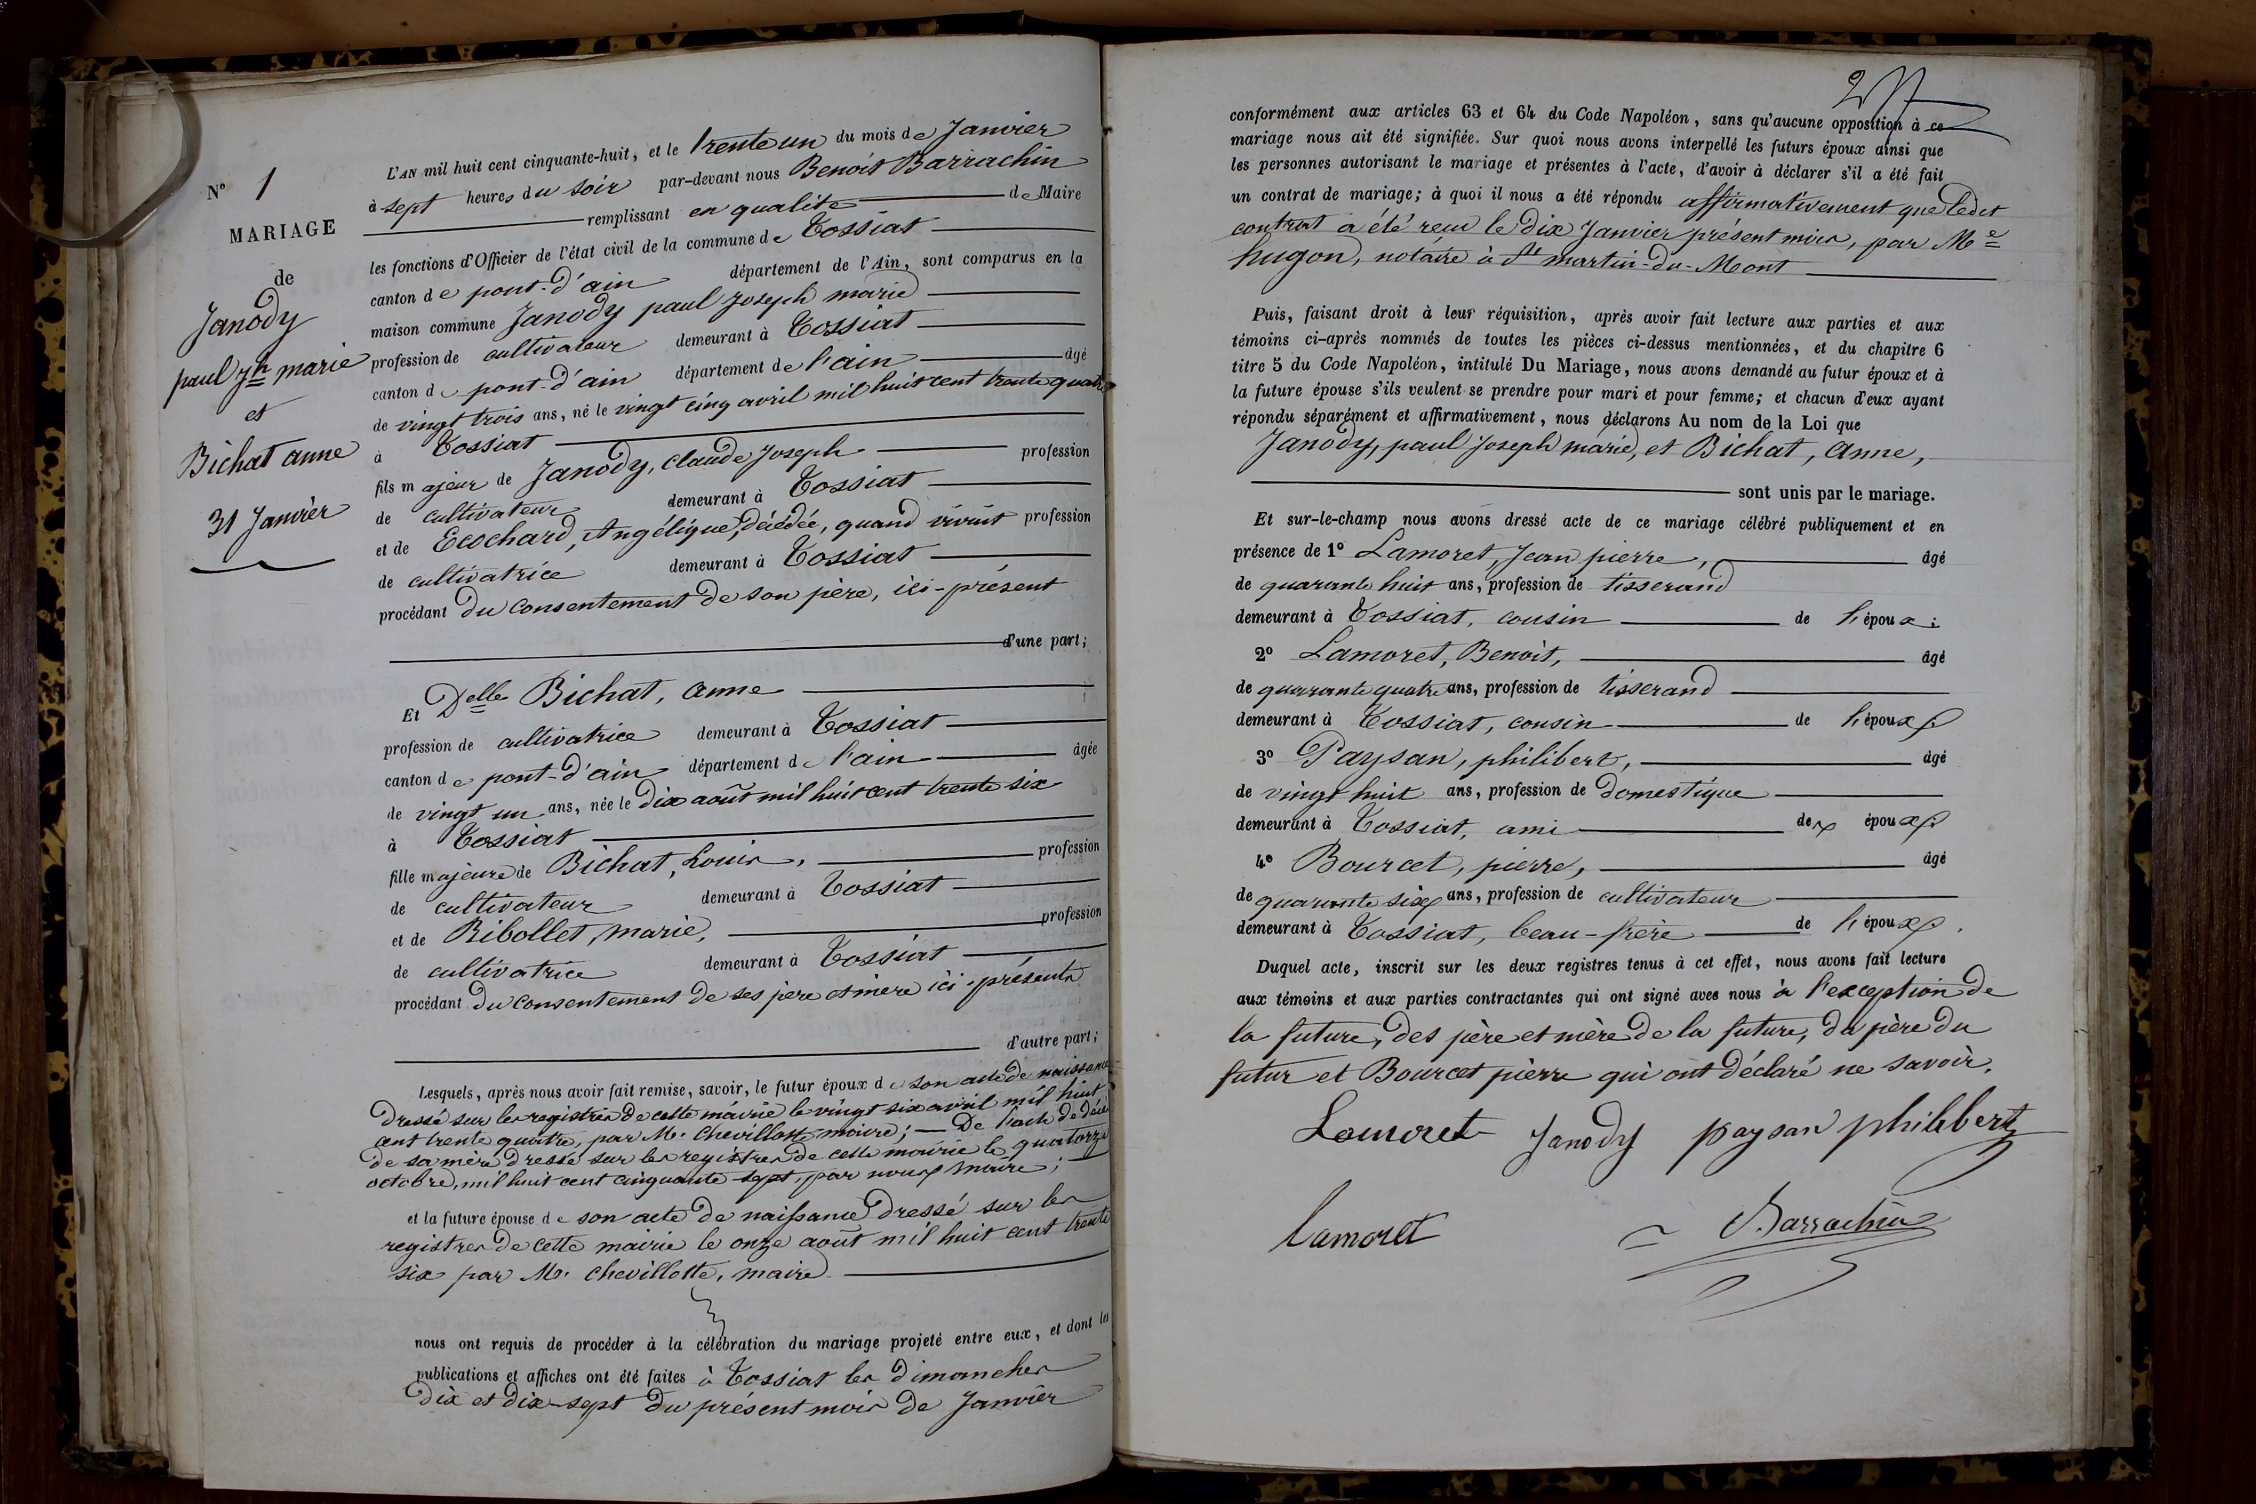 N° 1
MARIAGE
de
Janody
paul jh marie
et
Bichat anne
31 Janvier
L'AN mil huit cent cinquante-huit, et le trente un du mois de Janvier
à sept heures du soir par-devant nous Benoit Barrachin
remplissant en qualité de Maire
les fonctions d'Officier de l'état civil de la commune de Tossiat
canton de pont-d'ain département de l'Ain, sont comparus en la
maison commune Janody paul joseph marie
profession de cultivateur demeurant à Tossiat
canton de pont-d'ain département de l'ain âgé
de vingt trois ans, né le vingt cinq avril mil huit cent trente quatre
à Tossiat
fils majeur de Janody, claude joseph profession
de cultivateur demeurant à Tossiat
et de Ecochard, Angélique, décédée, quand vivait profession
de cultivatrice demeurant à Tossiat
procédant du consentement de son père, ici-présent
d'une part;
Et Delle Bichat, anne
profession de cultivatrice demeurant à Tossiat
canton de pont-d'ain département de l'ain âgée
de vingt un ans, née le dix août mil huit cent trente six
à Tossiat
fille majeure de Bichat, Louis, profession
de cultivateur demeurant à Tossiat
et de Ribollet, marie, profession
de cultivatrice demeurant à Tossiat
procédant du consentement de ses père et mère ici-présents
d'autre part;
Lesquels, après nous avoir fait remise, savoir, le futur époux de son acte de naissance
dressé sur les registres de cette mairie le vingt six avril mil huit
cent trente quatre, par M. Chevillotte, maire; — De l'acte de décès
de sa mère dressé sur les registres de cette mairie le quatorze
octobre, mil huit cent cinquante sept, par nous maire;
et la future épouse de son acte de naissance dressé sur les
registres de cette mairie le onze août mil huit cent trente
six par M. Chevillotte, maire
nous ont requis de procéder à la célébration du mariage projeté entre eux, et dont les
publications et affiches ont été faites à Tossiat les dimanches
dix et dix-sept du présent mois de Janvier
conformément aux articles 63 et 64 du Code Napoléon, sans qu'aucune opposition à ce
mariage nous ait été signifiée. Sur quoi nous avons interpellé les futurs époux ainsi que
les personnes autorisant le mariage et présentes à l'acte, d'avoir à déclarer s'il a été fait
un contrat de mariage; à quoi il nous a été répondu affirmativement que ledit
contrat a été reçu le dix Janvier présent mois, par Me
hugon, notaire à St martin-du-Mont
Puis, faisant droit à leur réquisition, après avoir fait lecture aux parties et aux
témoins ci-après nommés de toutes les pièces ci-dessus mentionnées, et du chapitre 6
titre 5 du Code Napoléon, intitulé Du Mariage, nous avons demandé au futur époux et à
la future épouse s'ils veulent se prendre pour mari et pour femme; et chacun d'eux ayant
répondu séparément et affirmativement, nous déclarons Au nom de la Loi que
Janody, paul joseph marie, et Bichat, anne,
sont unis par le mariage.
Et sur-le-champ nous avons dressé acte de ce mariage célébré publiquement et en
présence de 1° Lamoret, Jean pierre, âgé
de quarante huit ans, profession de tisserand
demeurant à Tossiat, cousin de l'époux;
2° Lamoret, Benoit, âgé
de quarante quatre ans, profession de tisserand
demeurant à Tossiat, cousin de l'époux
3° Paysan, philibert, âgé
de vingt huit ans, profession de domestique
demeurant à Tossiat, ami des époux
4° Bourcet, pierre, âgé
de quarante six ans, profession de cultivateur
demeurant à Tossiat, beau-frère de l'époux.
Duquel acte, inscrit sur les deux registres tenus à cet effet, nous avons fait lecture
aux témoins et aux parties contractantes qui ont signé avec nous à l'exception de
la future, des père et mère de la future, du père du
futur et Bourcet pierre qui ont déclaré ne savoir.
Lamoret Janody paysan philibert
Lamoret Barrachin